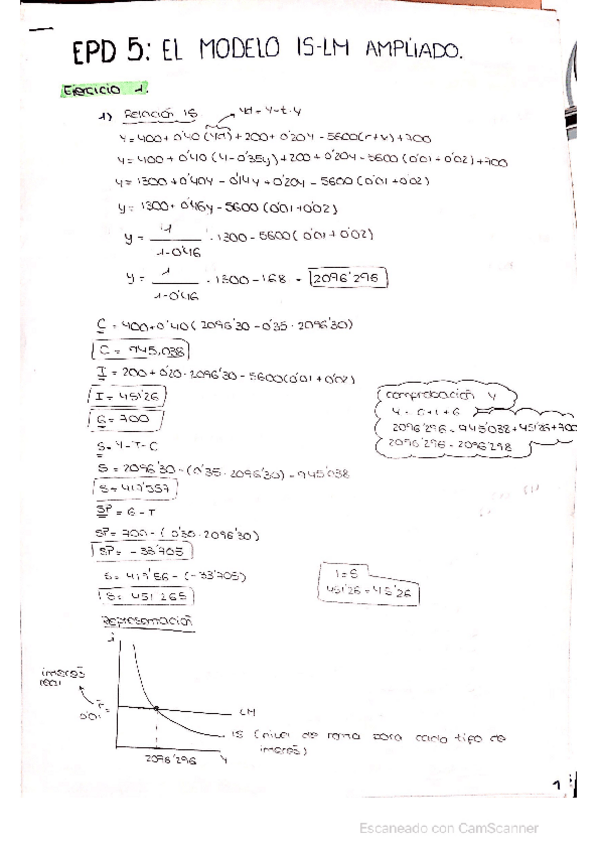 EPD 5: EL MODELO IS-LM AMPLIADO.
Ejercicio 1.
1) Relación IS → Yd = Y-t·Y
Y = 400 + 0'40 (Yd) + 200 + 0'20Y - 5600(r+x) + 700
Y = 400 + 0'40 (Y - 0'35Y) + 200 + 0'20Y - 5600 (0'01 + 0'02) + 700
Y = 1300 + 0'40Y - 0'14Y + 0'20Y - 5600 (0'01 + 0'02)
Y = 1300 + 0'46Y - 5600 (0'01 + 0'02)
Y = 1 / 1-0'46 · 1300 - 5600 (0'01 + 0'02)
Y = 1 / 1-0'46 · 1300 - 168 = 2096'296
C = 400 + 0'40 ( 2096'30 - 0'35 · 2096'30)
C = 945,038
I = 200 + 0'20 · 2096'30 - 5600 (0'01 + 0'02)
I = 451'26
G = 700
S = Y - T - C
S = 2096'30 - (0'35 · 2096'30) - 945'038
S = 417'557
SP = G - T
SP = 700 - ( 0'35 · 2096'30)
SP = - 33'705
S = 417'56 - (-33'705)
S = 451'265
comprobación Y
Y = C + I + G
2096'296 = 945'038 + 451'26 + 700
2096'296 = 2096'298
I = S
451'26 = 451'26
Representación
i
interés
real
r =
0'01
LM
IS (nivel de renta para cada tipo de
interés)
2096'296
Y
1
Escaneado con CamScanner